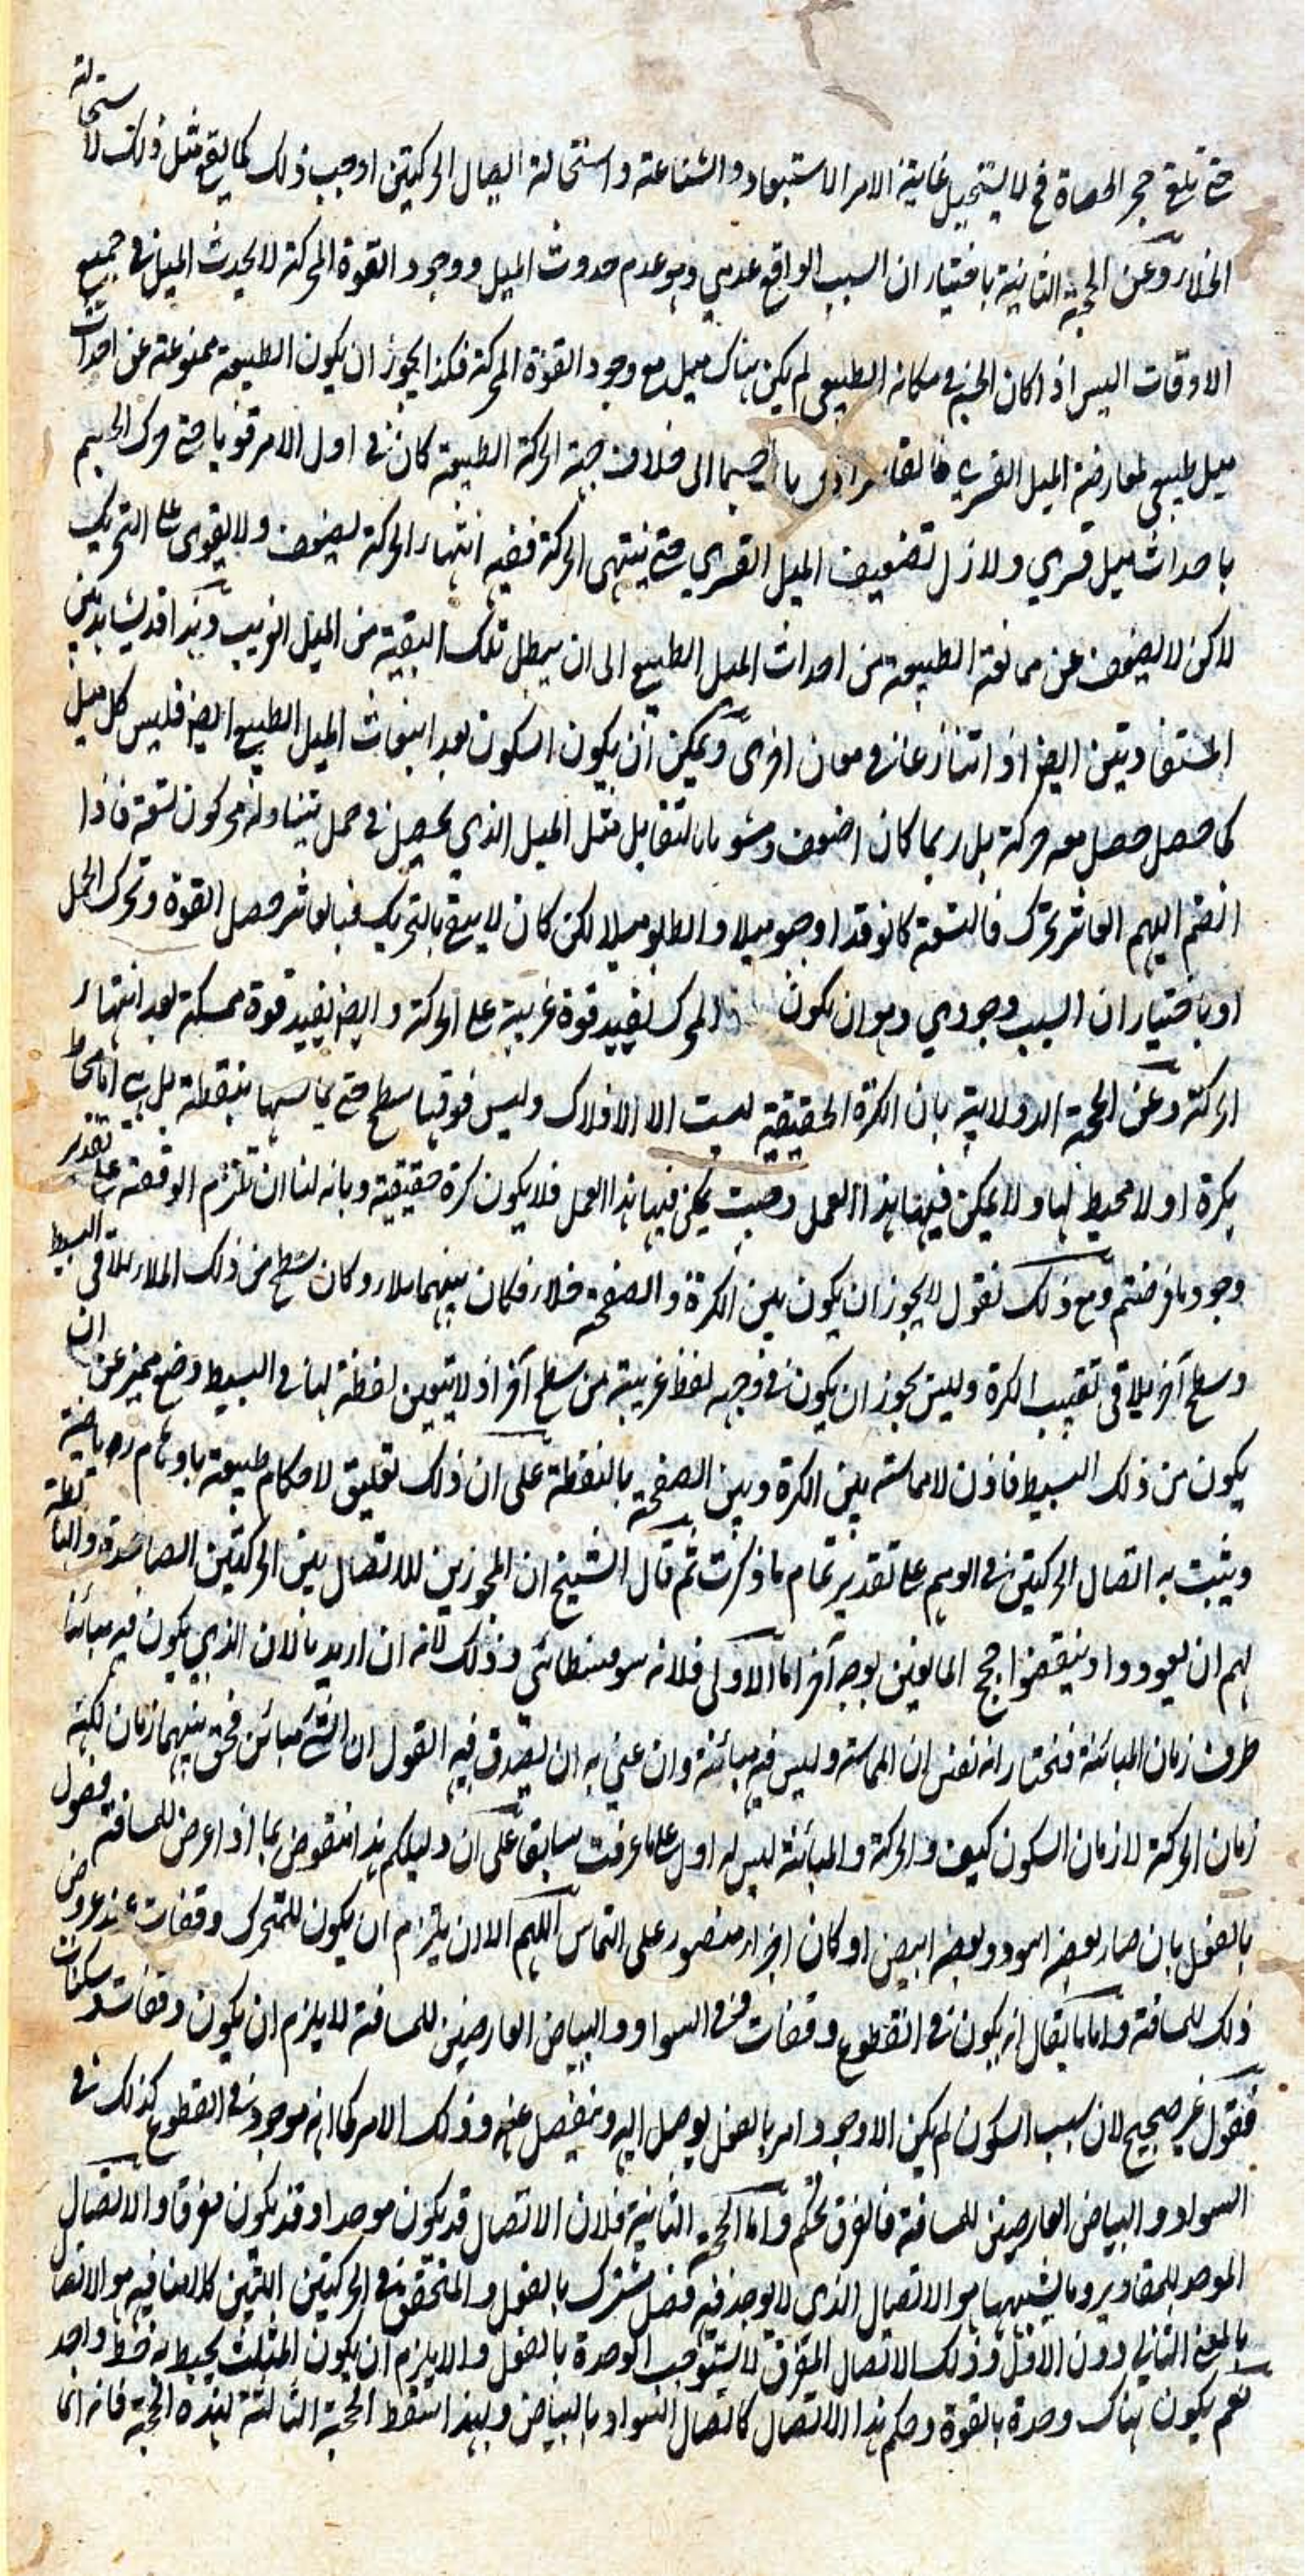 حتى تلقى حجر الحصاة فح لا يستحيل غاية الامر الاستبعاد والشناعة واستحالة اتصال الحركتين اوجب ذلك كما يقع مثل ذلك لاستحالة
الخلاء وعن الحجة الثانية باختيار ان السبب الواقع عدمي وهو عدم حدوث الميل ووجود القوة المحركة لا يحدث الميل في جميع
الاوقات اليس اذا كان الجسم في مكانه الطبيعي لم يكن هناك ميل مع وجود القوة المحركة فكذا يجوز ان يكون الطبيعة ممنوعة عن احداث
ميل طبيعي لمعارضة الميل القسري فالقاسر اذا جسما الى خلاف جهة الحركة الطبيعة كان في اول الامر قويا حتى حرك الجسم
باحداث ميل قسري ولازل تضعيف الميل القسري حتى ينتهي الحركة ففيه انتهاء الحركة يضعف ولا يقوى على التحريك
لاكن لا يضعف عن ممانعة الطبيعة من احداث الميل الطبيع الى ان يبطل تلك البقية من الميل الغريب وهذا قد يشاهد بين
المتقاديتين ايض اذا تنازعتا في معان اخرى ويمكن ان يكون السكون بعد انبعاث الميل الطبيع ايض فليس كل ميل
كما حصل حصل معه حركة بل ربما كان اضعف ومشوبا بالتقابل مثل الميل الذي يحصل في حمل يتناوله محركون تسعة فاذا
انضم اليهم العاشر تحرك فالتسعة كانوا قد اوجبوا ميلا واطلبوا ميلا لكن كان لا يفي بالتحريك فبالعاشر حصل القوة وتحرك الحمل
او باختيار ان السبب وجودي وهو ان يكون المحرك يفيد قوة غريبة على الحركة وايض يفيد قوة ممسكة بعد انتهاء
الحركة وعن الحجة الدولابية بان الكرة الحقيقية ليست الا الافلاك وليس فوقها سطح حتى يماسها بنقطة بل هي اما محاط
بكرة او لا محيط لها ولا يمكن فيها هذا العمل وحيث يمكن فيها هذا العمل فلا يكون كرة حقيقية وبانه لنا ان نلتزم الوقفة على تقدير
وجود ما فرضتم ومع ذلك نقول لا يجوز ان يكون بين الكرة والصفحة خلاء فكان بينهما ملاء وكان سطح من ذلك الملاء يلاقي البسيط
وسطح آخر يلاقي تقبيب الكرة وليس يجوز ان يكون في وجهه لفظ غريبة من سطح آخر اذ لا يتعين لفظة لها في البسيط وضع مميز عن ان
يكون من ذلك البسيط فاذن لا مماسة بين الكرة وبين الصفحة بالنقطة على ان ذلك تعليق لاحكام طبيعة باوهام رياضية
ويثبت به اتصال الحركتين في الوهم على تقدير تمام ما ذكرت ثم قال الشيخ ان المجوزين للاتصال بين الحركتين الصاعدة والهابطة
لهم ان يعودوا وينقضوا حجج المانعين بوجه آخر اما الاولى فلانه سوفسطائي وذلك لانه ان اريد بالان الذي يكون فيه مبائنا
طرف زمان المبائنة فنختار انه نفس ان المماسة وليس فيه مبائنة وان عني به ان يصدق فيه القول ان الشئ مبائن فحق بينهما زمان لكنه
زمان الحركة لا زمان السكون كيف والحركة والمبائنة ليس له اول على ما عرفت سابقا على ان دليلكم هذا منقوض بما اذا عرض للمسافة فصول
بالفعل بان صار بعضه اسود وبعضه ابيض او كان اجزاء منضود على التماس اللهم الا ان يلتزم ان يكون للمتحرك وقفات عند عروض
ذلك للمسافة واما ما يقال انه يكون في القطوع وقفات وفي السواد والبياض العارضين للمسافة لا يلزم ان يكون وقفات وسكنات
فقول غير صحيح لان سبب السكون لم يكن الا وجود امر بالفعل يوصل اليه وينفصل عنه وذلك الامر كما انه موجود في القطوع كذلك في
السواد والبياض العارضين للمسافة فالفرق تحكم واما الحجة الثانية فلان الاتصال قد يكون موحدا وقد يكون مفرقا والاتصال
الموحد للمقادير وما يشبهها هو الاتصال الذي لا يوجد فيه فصل مشترك بالفعل والمتحقق في الحركتين اللتين كلامنا فيه هو الاتصال
بالمعنى الثاني دون الاول وذلك الاتصال المفرق لا يستوجب الوحدة بالفعل والا يلزم ان يكون المثلث يحيط به خط واحد
نعم يكون هناك وحدة بالقوة وحكم هذا الاتصال كاتصال السواد بالبياض وبهذا اسقط الحجة الثالثة لهذه الحجة فانه انما